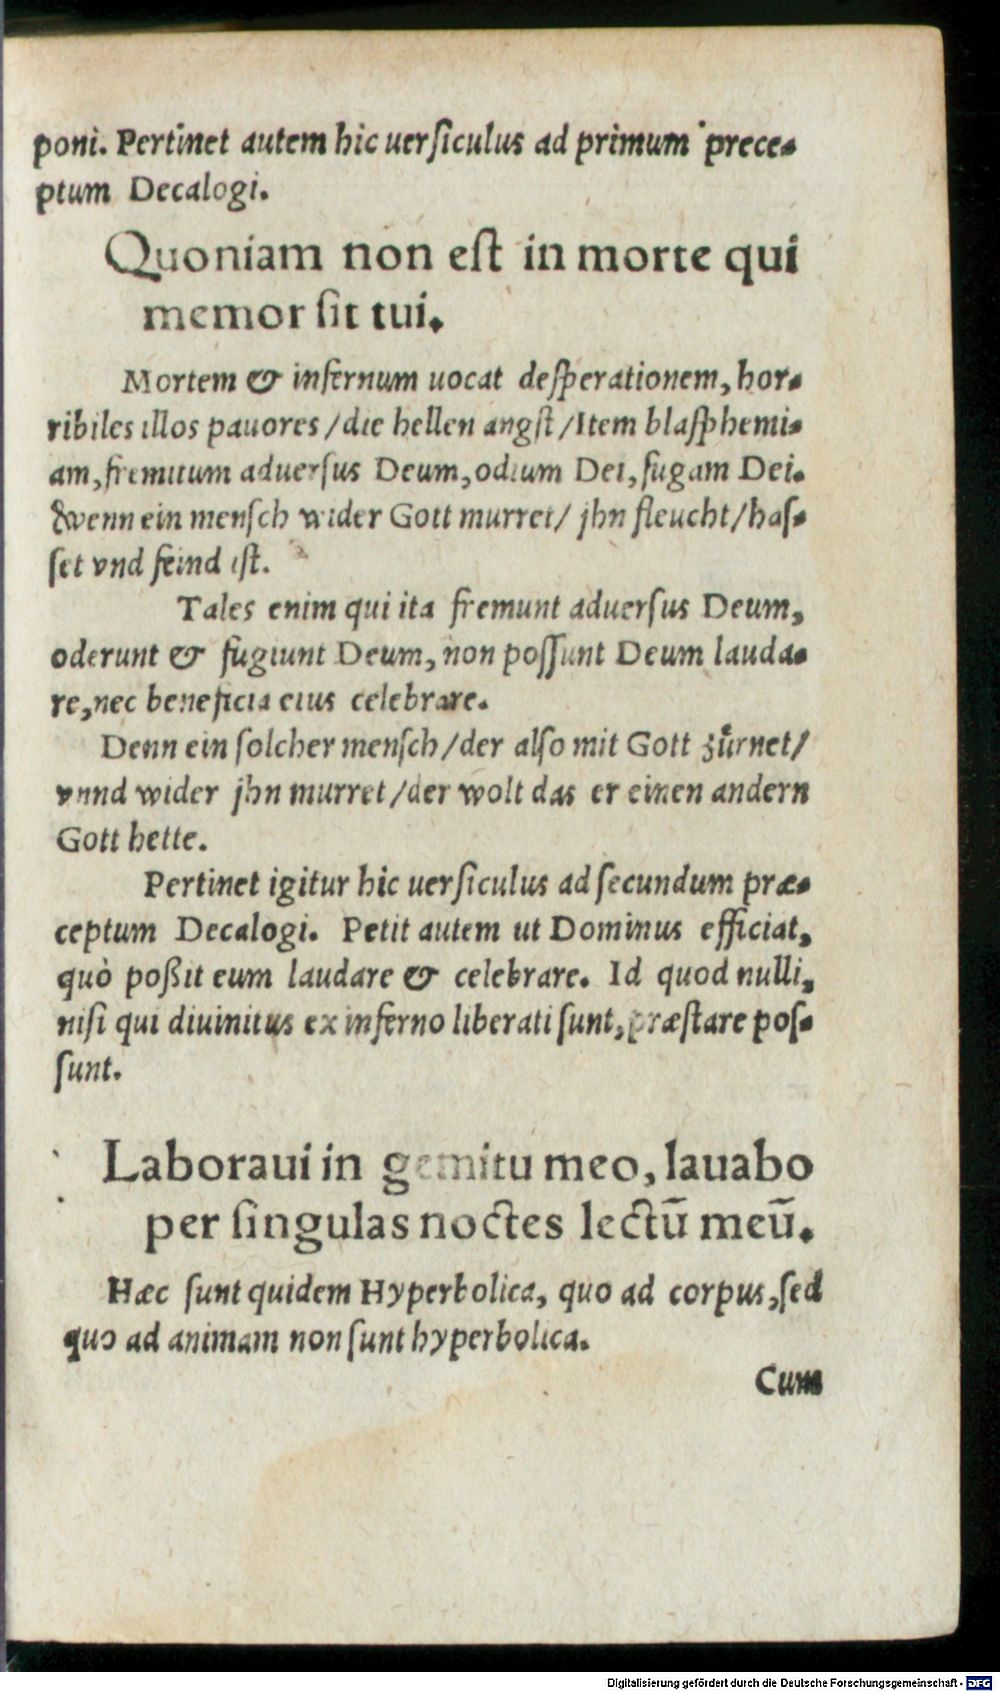 poni. Pertinet autem hic uerſiculus ad primum prece⸗
ptum Decalogi.
Quoniam non eſt in morte qui
memor ſit tui.
Mortem & infernum uocat deſperationem, hor⸗
ribiles illos pauores /die hellen angſt /Item blaſphemi⸗
am, fremitum aduerſus Deum, odium Dei, fugam Dei.
wenn ein menſch wider Gott murret/ jhn fleucht/haſ⸗
ſet vnd feind iſt.
Tales enim qui ita fremunt aduerſus Deum,
oderunt & fugiunt Deum, non poſſunt Deum lauda⸗
re, nec beneficia eius celebrare.
Denn ein ſolcher menſch/der alſo mit Gott zuͤrnet/
vnnd wider jhn murret /der wolt das er einen andern
Gott hette.
Pertinet igitur hic uerſiculus ad ſecundum præ⸗
ceptum Decalogi. Petit autem ut Dominus efficiat,
quò poßit eum laudare & celebrare. Id quod nulli,
niſi qui diuinitus ex inferno liberati ſunt, præſtare poſ⸗
ſunt.
Laboraui in gemitu meo, lauabo
per ſingulas noctes lectū meū.
Hæc ſunt quidem Hyperbolica, quo ad corpus, ſed
quo ad animam non ſunt hyperbolica.
Cum
Digitalisierung gefördert durch die Deutsche Forschungsgemeinschaft - DFG